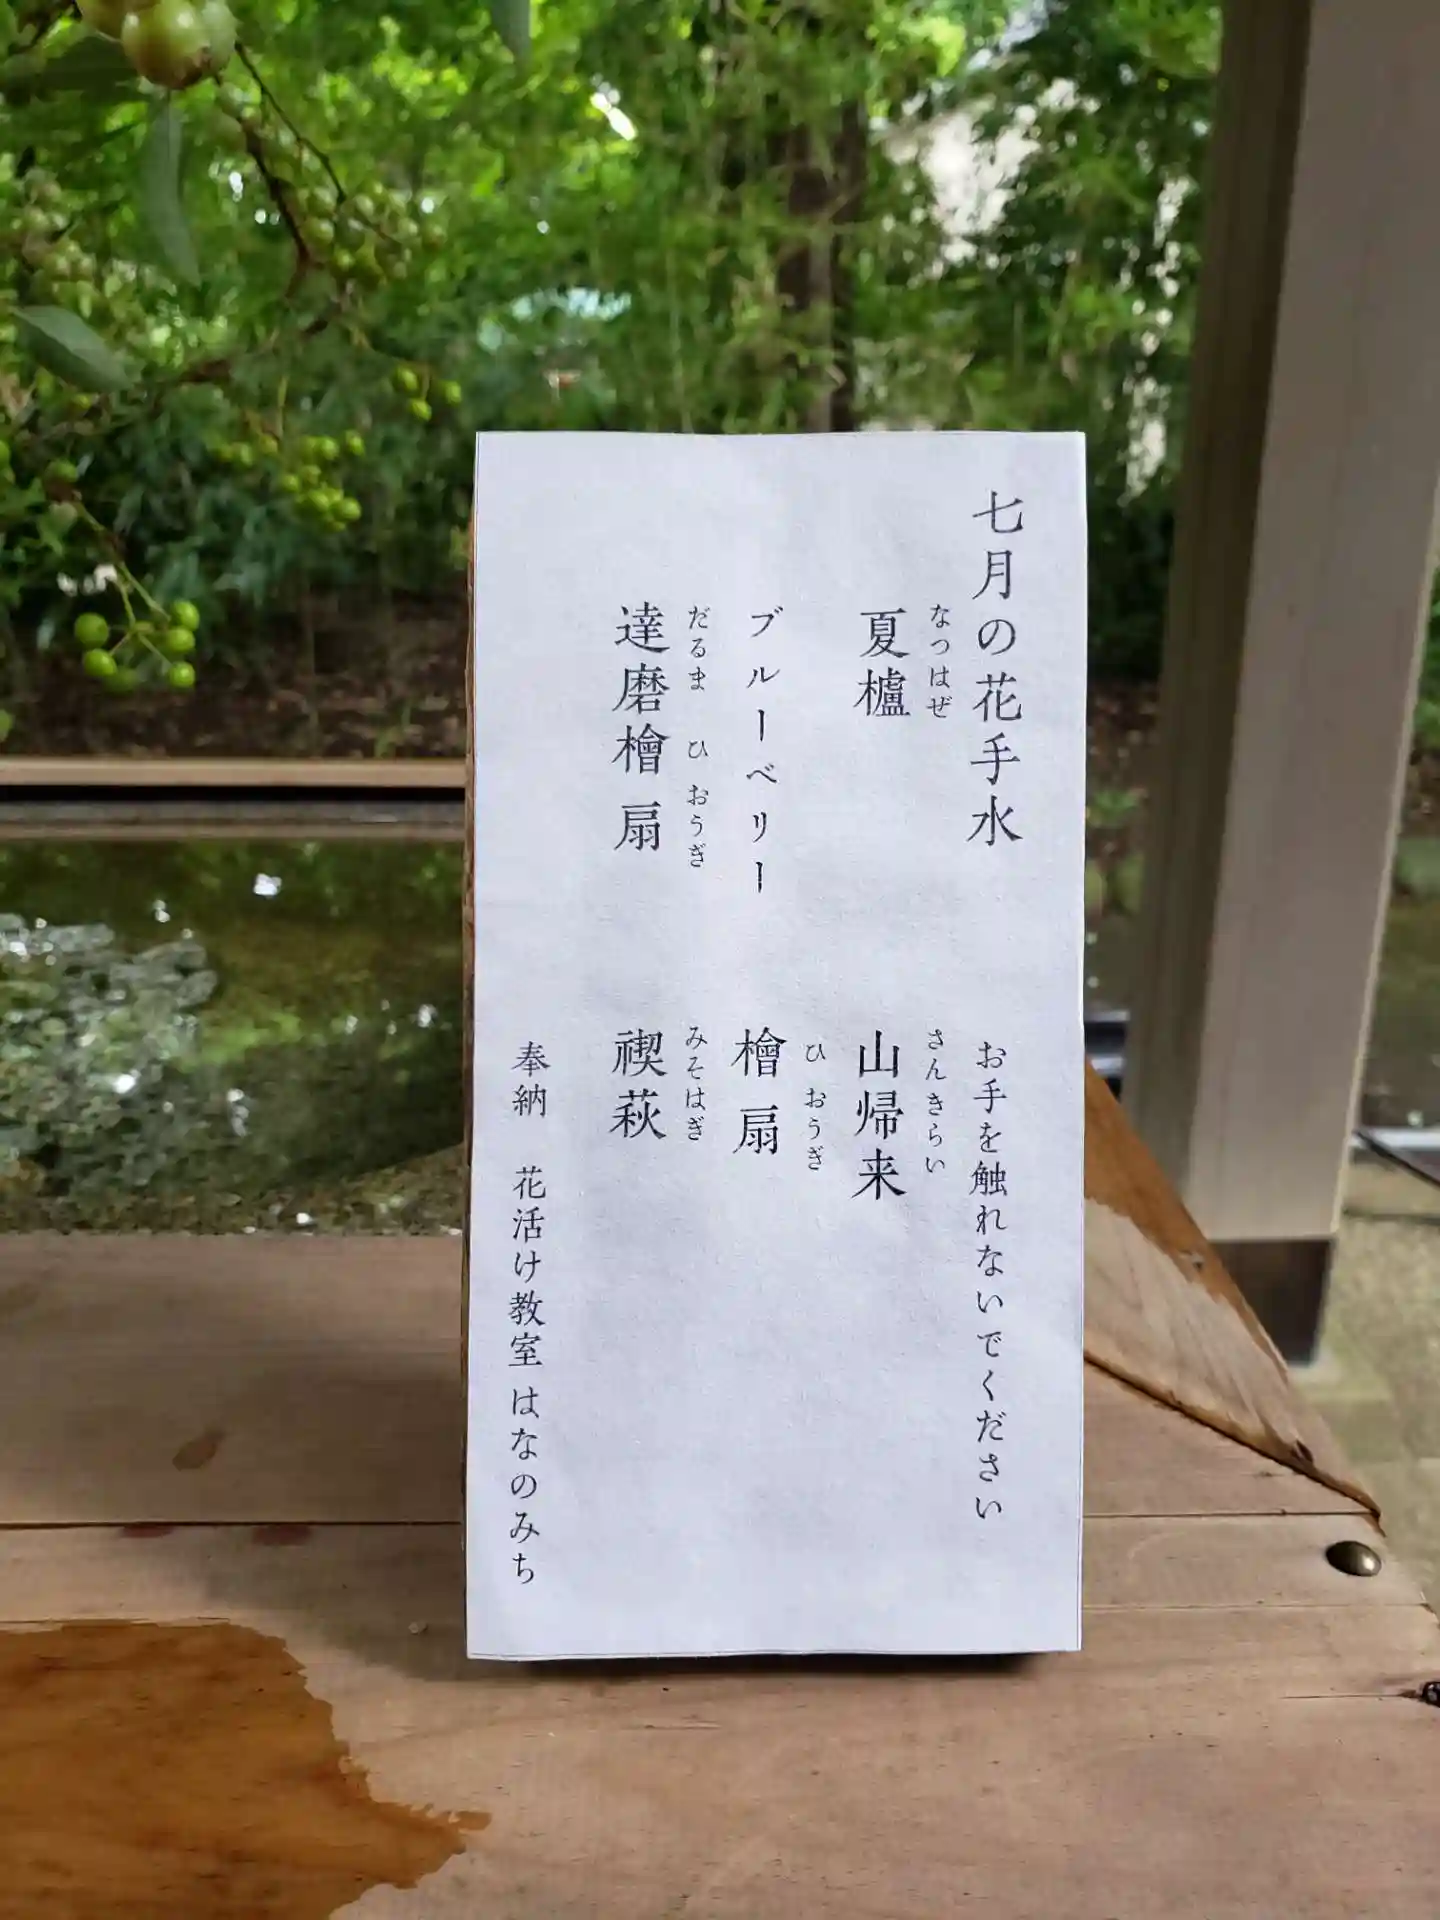 七月の花手水
お手を触れないでください
なつはぜ
夏櫨
さんきらい
山帰来
ブルーベリー
ひ おうぎ
檜扇
だるま ひ おうぎ
達磨檜扇
みそはぎ
禊萩
奉納 花活け教室 はなのみち